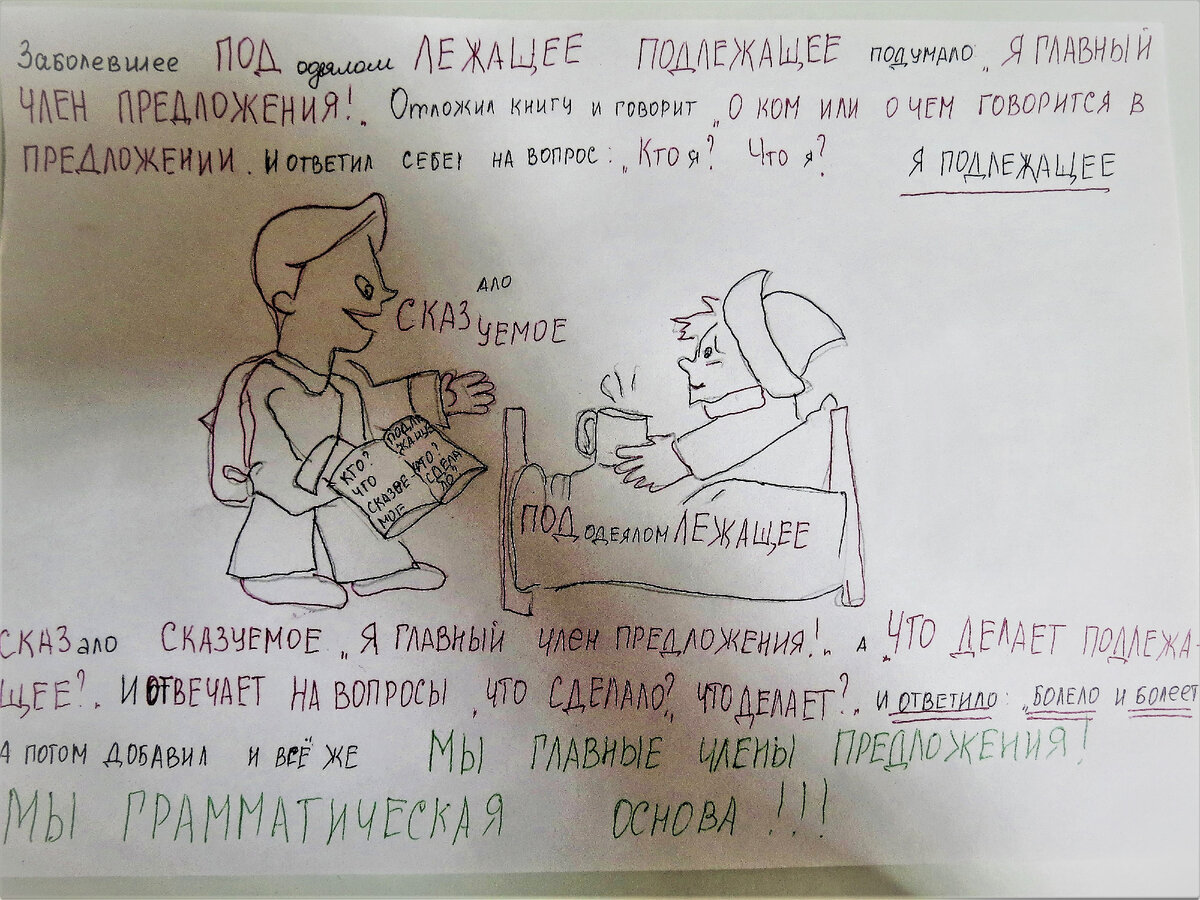 Заболевшее ПОД одеялом ЛЕЖАЩЕЕ ПОДЛЕЖАЩЕЕ подумало „Я ГЛАВНЫЙ
ЧЛЕН ПРЕДЛОЖЕНИЯ!„ Отложил книгу и говорит „О КОМ ИЛИ О ЧЕМ ГОВОРИТСЯ В
ПРЕДЛОЖЕНИИ. И ОТВЕТИЛ СЕБЕ НА ВОПРОС: „Кто я? Что я? Я ПОДЛЕЖАЩЕЕ
СКАЗ АЛО
УЕМОЕ
КТО?
ЧТО
СКАЗУЕ
МОЕ
ПОДЛЕ
ЖАЩЕЕ
СДЕЛА
ЛО?
ПОД ОДЕЯЛОМ ЛЕЖАЩЕЕ
СКАЗало СКАЗУЕМОЕ „Я ГЛАВНЫЙ ЧЛЕН ПРЕДЛОЖЕНИЯ!„ А „ЧТО ДЕЛАЕТ ПОДЛЕЖА-
ЩЕЕ?„ И ОТВЕЧАЕТ НА ВОПРОСЫ „ЧТО СДЕЛАЛО?„ ЧТО ДЕЛАЕТ?„ И ОТВЕТИЛО: „БОЛЕЛО И БОЛЕЕТ
А ПОТОМ ДОБАВИЛ И ВСЁ ЖЕ МЫ ГЛАВНЫЕ ЧЛЕНЫ ПРЕДЛОЖЕНИЯ!
МЫ ГРАММАТИЧЕСКАЯ ОСНОВА !!!